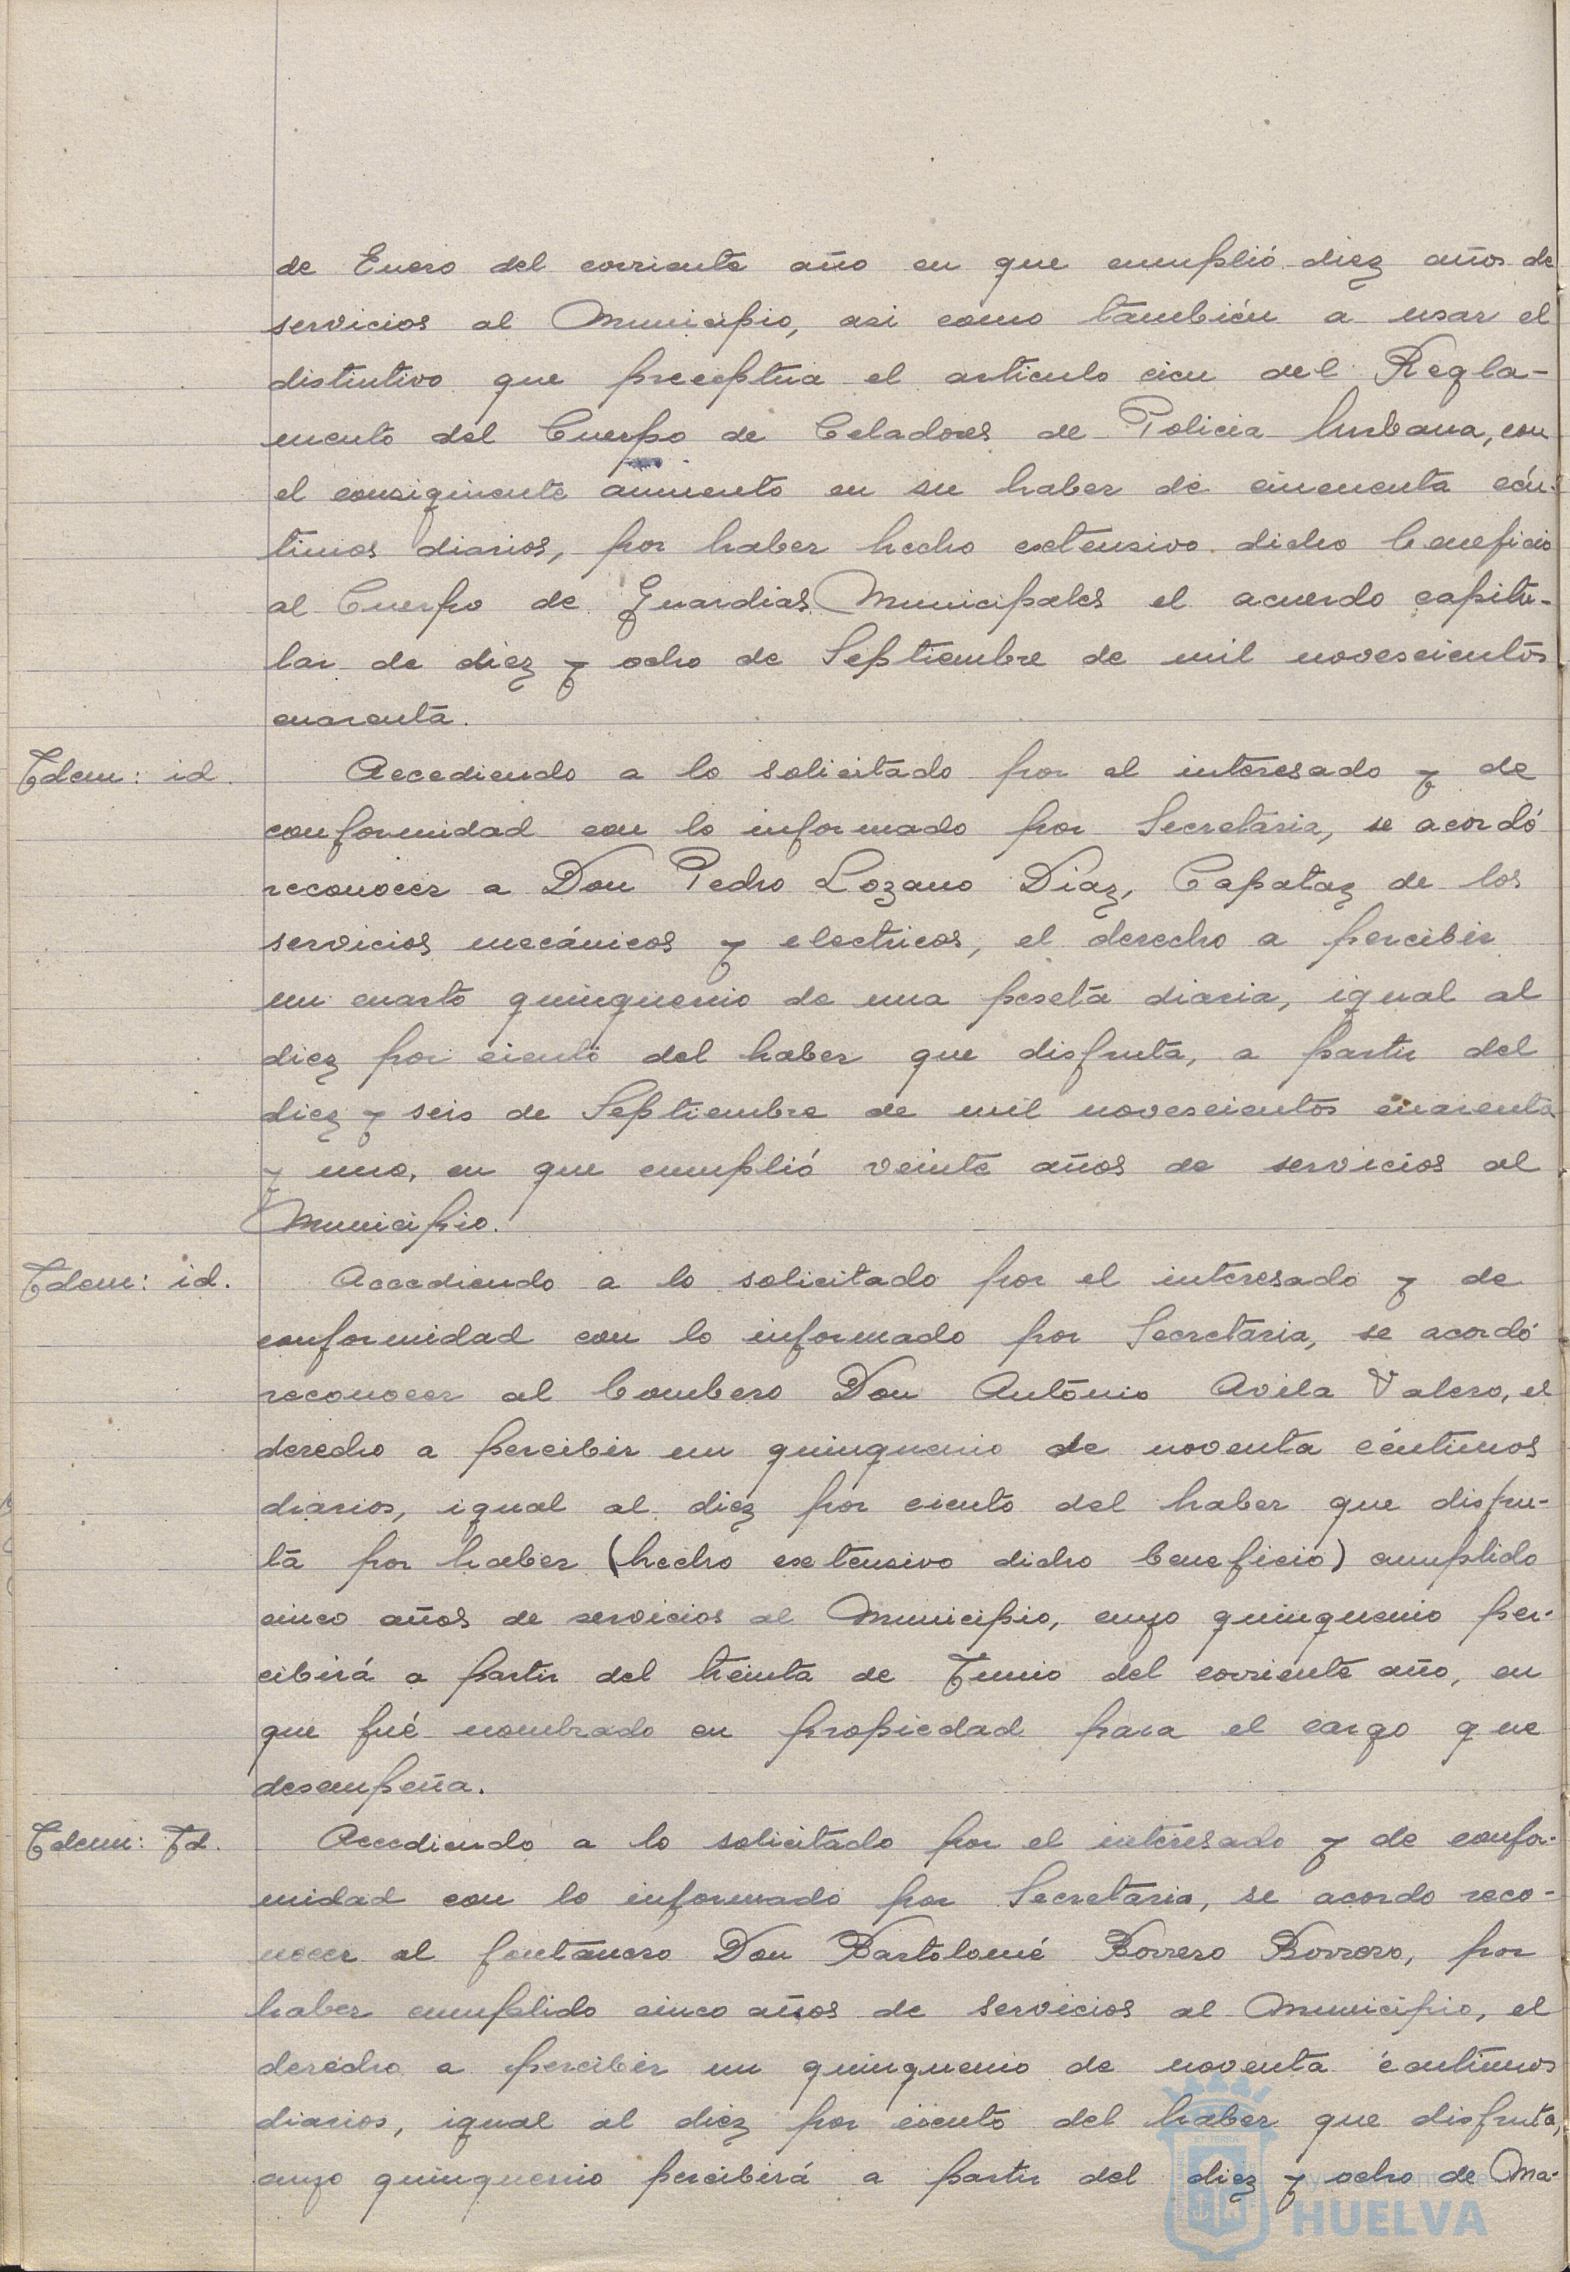 de Enero del corriente año en que cumplió diez años de
servicios al Municipio, asi como también a usar el
distintivo que preceptúa el articulo cien del Regla-
mento del Cuerpo de Celadores de Policia Urbana, con
el consiguiente aumento en su haber de cincuenta cén-
timos diarios, por haber hecho extensivo dicho beneficio
al Cuerpo de Guardias Municipales el acuerdo capitu-
lar de diez y ocho de Septiembre de mil novescientos
cuarenta.
Idem: id.
Accediendo a lo solicitado por el interesado y de
conformidad con lo informado por Secretaria, se acordó
reconocer a Don Pedro Lozano Diaz, Capataz de los
servicios mecánicos y electricos, el derecho a percibir
un cuarto quinquenio de una peseta diaria, igual al
diez por ciento del haber que disfruta, a partir del
diez y seis de Septiembre de mil novescientos cuarenta
y uno, en que cumplió veinte años de servicios al
Municipio.
Idem: id.
Accediendo a lo solicitado por el interesado y de
conformidad con lo informado por Secretaria, se acordó
reconocer al bombero Don Antonio Avila Valero, el
derecho a percibir un quinquenio de noventa céntimos
diarios, igual al diez por ciento del haber que disfru-
ta por haber (hecho extensivo dicho beneficio) cumplido
cinco años de servicios al Municipio, cuyo quinquenio per-
cibirá a partir del treinta de Junio del corriente año, en
que fué nombrado en propiedad para el cargo que
desempeña.
Idem: Id.
Accediendo a lo solicitado por el interesado y de confor-
midad con lo informado por Secretaria, se acordo reco-
nocer al fontanero Don Bartolomé Borrero Borrero, por
haber cumplido cinco años de servicios al Municipio, el
derecho a percibir un quinquenio de noventa céntimos
diarios, igual al diez por ciento del haber que disfruta,
cuyo quinquenio percibirá a partir del diez y ocho de Ma-
Ayuntamiento de
HUELVA